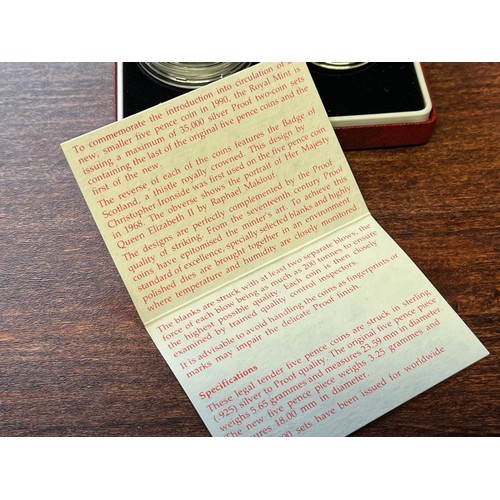 To commemorate the introduction into circulation of a
new, smaller five pence coin in 1990, the Royal Mint is
issuing a maximum of 35,000 silver Proof two-coin sets
containing the last of the original five pence coins and the
first of the new.
The reverse of each of the coins features the Badge of
Scotland, a thistle royally crowned. This design by
Christopher Ironside was first used on the five pence coin
in 1968. The obverse shows the Portrait of Her Majesty
Queen Elizabeth II by Raphael Maklouf.
The designs are perfectly complemented by the Proof
quality of striking. From the seventeenth century Proof
coins have epitomised the minter's art. To achieve this
standard of excellence, specially selected blanks and highly
polished dies are brought together in an environment
where temperature and humidity are closely monitored.
The blanks are struck with at least two separate blows, the
force of each blow being as much as 200 tonnes, to ensure
the highest possible quality. Each coin is then closely
examined by trained quality control inspectors.
It is advisable to avoid handling the coins as fingerprints or
marks may impair the delicate Proof finish.
Specifications
These legal tender five pence coins are struck in sterling
(.925) silver to Proof quality. The original five pence piece
weighs 5.65 grammes and measures 23.59 mm in diameter.
The new five pence piece weighs 3.25 grammes and
sures 18.00 mm in diameter.
00 sets have been issued for worldwide